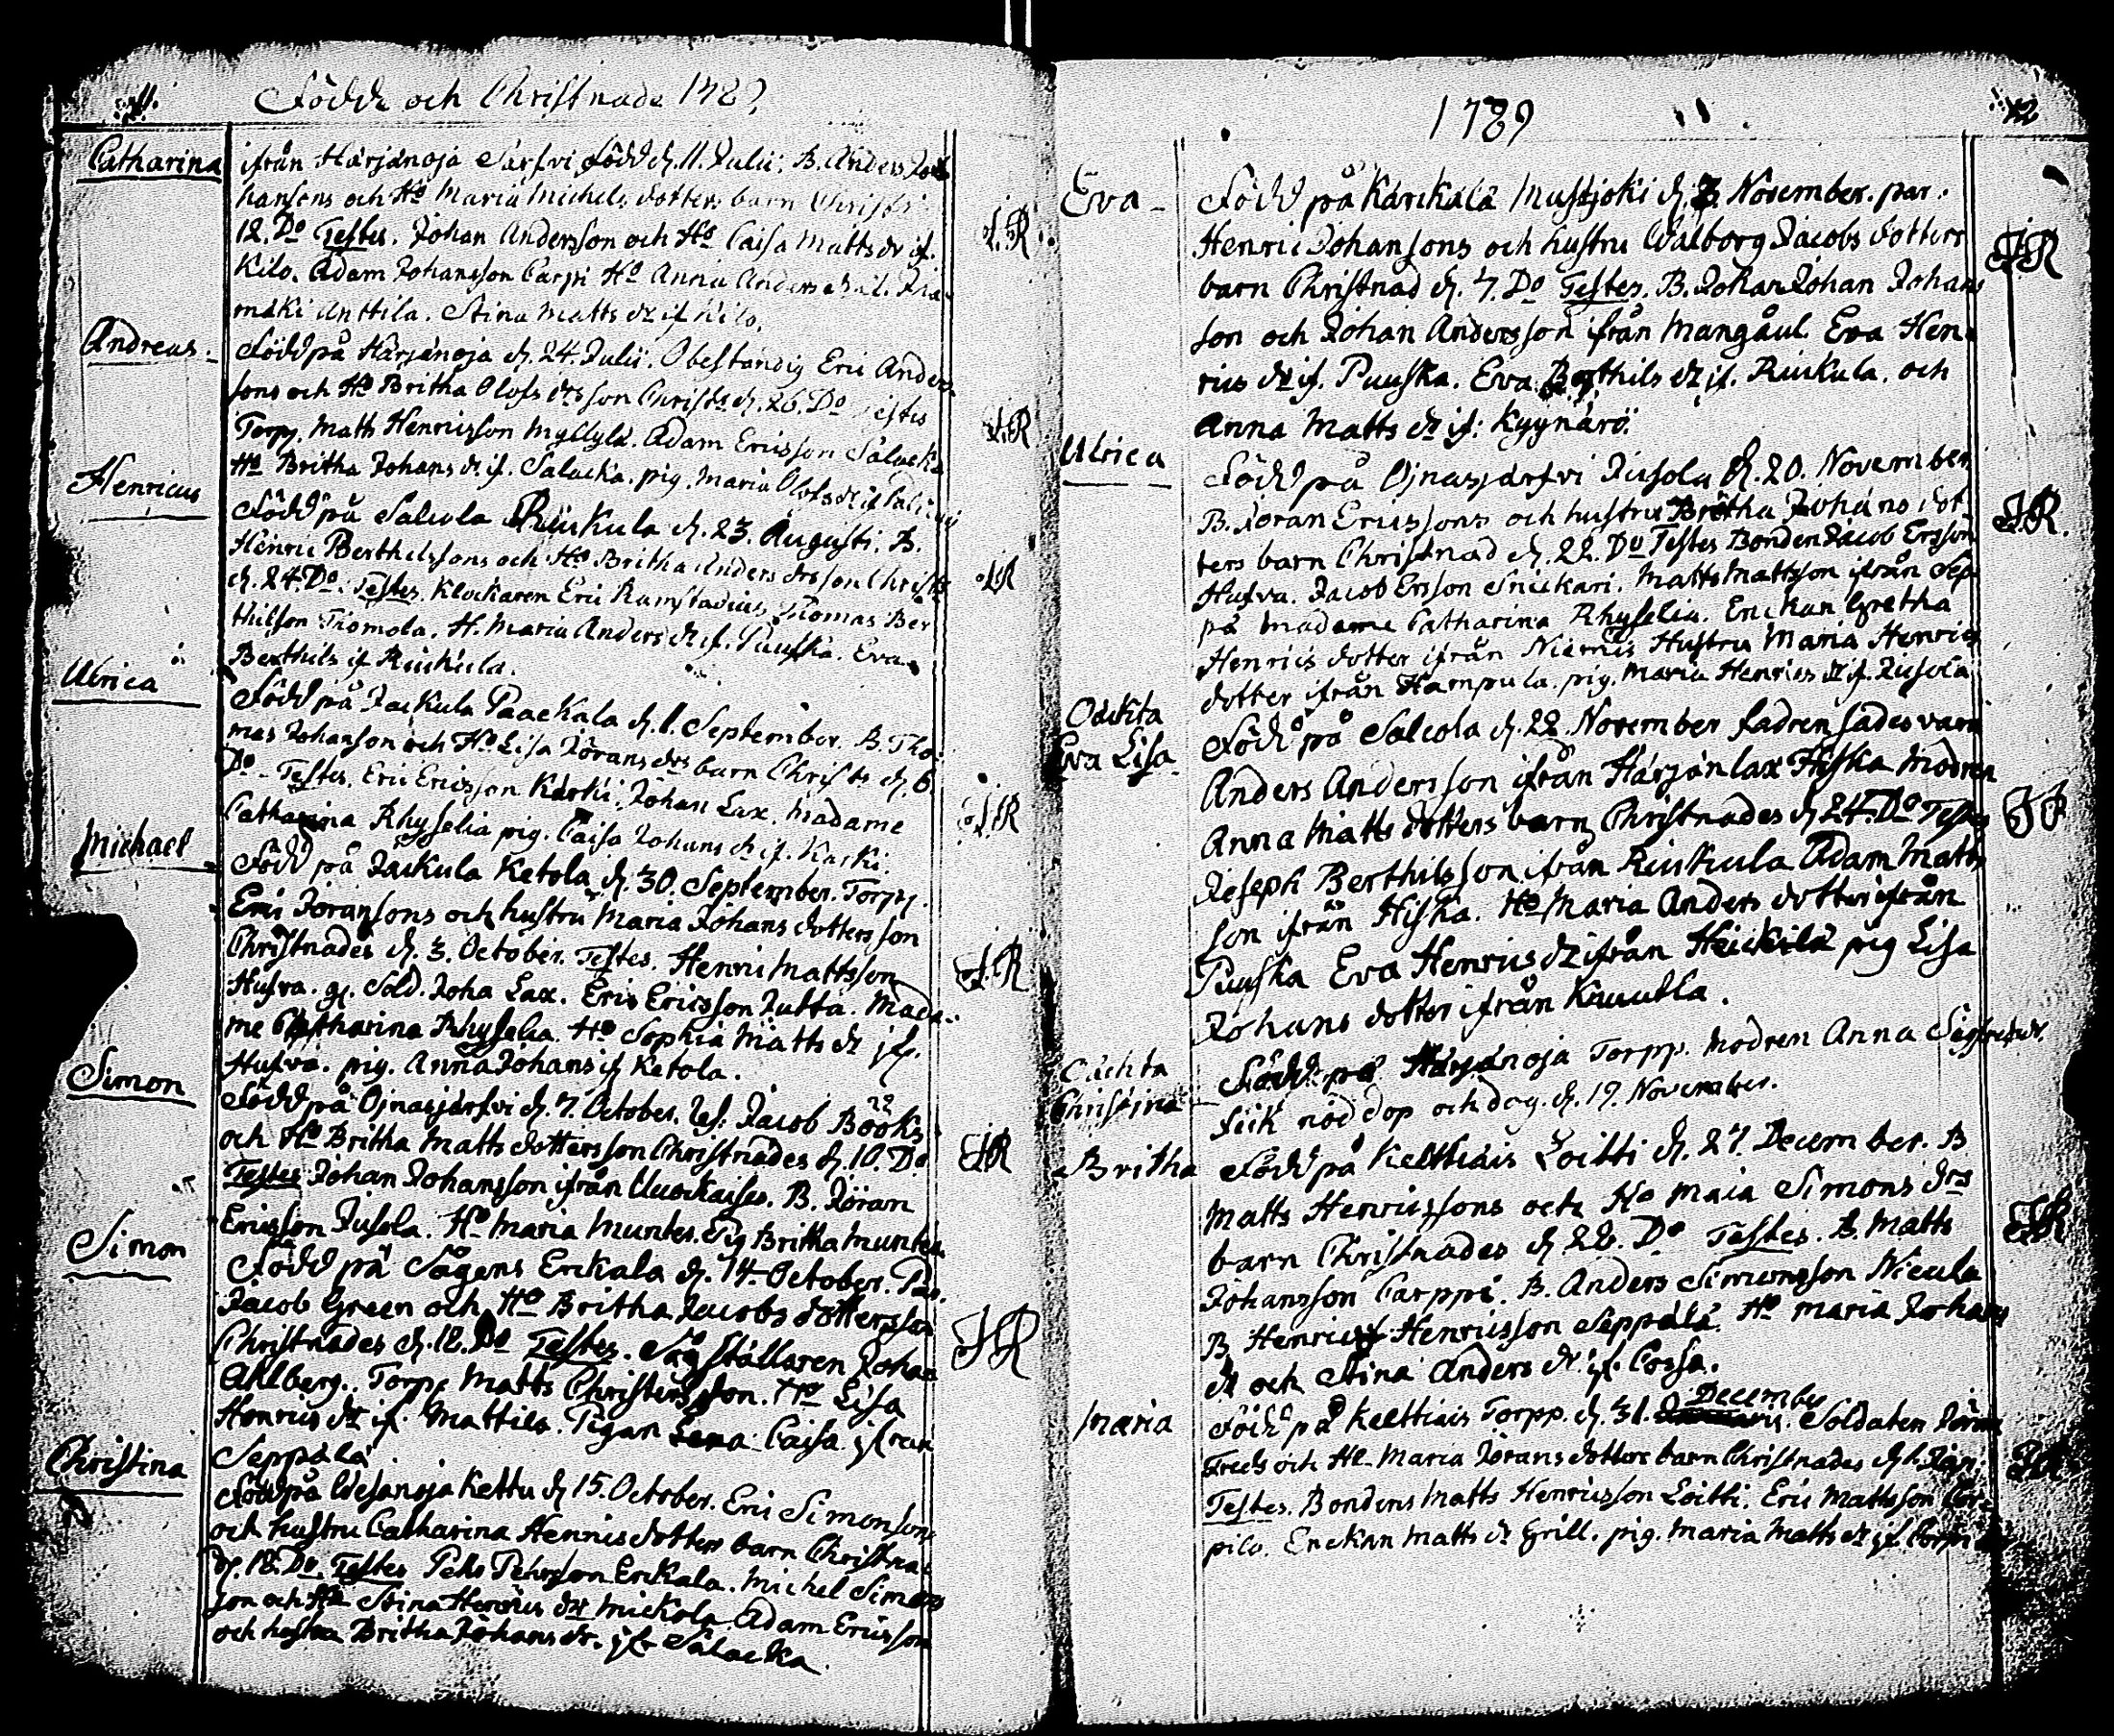 11.
Födde och Christnade 1789
Catharina
ifrån Härjänoja Särfvi Född d. 11. Julii. B. Anders Jo
hansons och Ho Maria Michels dotters barn Christ
12. Do Testes. Johan Andersson och Ho Caisa Matts dr if.
Kilo. Adam Johansson Carpi Ho Anna Anders
mäki Anttila. Stina Matts dr if Kilo.
Andreas
Född på Härjänoja d. 24. Julii. Obeständig Eric Anders
sons och Ho Britha Olofs drs son Christs d. 26. Do Testes
Torp. Matts Henricsson Myllylä. Adam Ericsson Salacka
Ho Britha Johans dr if. Salacka. pig. Maria Olofs dr if
Henricus
Född på Salcola Riuckula d. 23. Augusti. B.
Henric Berthilssons och Ho Britha Anders drs son Christs
d. 24. Do. Testes. Klockaren Eric Ramstadius Thomas Ber
thilson Tiomola. H. Maria Anders dr if. Puuska. Eva
Berthils if Riuckula.
Ulrica
Född på Jackula Paackala d. 1. September. B. Tho
mas Johanson och Ho Lisa Jörans drs barn Christs d. 6
Do Testes. Eric Ericsson Karki. Johan Lax. Madame
Catharina Rhyselia pig. Caisa Johans dr if. Karki.
Michael
Född på Jackula Ketola d. 30. September. Torpp.
Eric Joransons och hustru Maria Johans dotters son
Christnades d. 3. October. Testes. Henric Mattsson
Hufva. g. Sold. Joha Lax. Eric Ericsson Jutta. Mada
me Catharina Rhyselia. Ho Sophia Matts dr if.
Hufva. pig. Anna Johans if Ketola.
Simon
Född på Ojnasjärfvi d. 7. October. Jacob Böök
och Ho Britha Matts dotters son Christnades d. 10. Do
Testes Johan Johansson ifrån B. Jöran
Ericsson Jusola. Ho Maria Munter. Pig Britha Munter
Simon
Född på Sågens Erckala d. 14. October.
Jacob Green och Ho Britha Jacobs dotters son
Christnades d. 18. Do Testes. Sågställaren Johan
Ahlberg. Torpp Matts Christersson. Ho Lisa
Henrics dr if. Mattila. Pigan Lena Caisa ifrån
Seppälä
Christina
Född på Wesanoja Kettu d 15. October. Eric Simonsons
och hustru Catharina Henrics dotters barn Christna
d. 18. Do. Testes Pehr Pehrsson Erckala. Michel Simons
son och Ho Stina Henrics dr Mickola Adam Ericsson
och hustru Britha Johans dr. if Salacka.
1789
12
Eva
Född på Karckala Mustjoki d. 3. November. par.
Henric Johansons och hustru Walborg Jacobs dotters
barn Christnad d. 7. Do Testes. B. Johan Johan Johans
son och Johan Andersson ifrån Mangåul. Eva Hen
rics dr if. Puuska. Eva Berthils dr if. Riuckula. och
Anna Matts dr if: Kyynärö.
Ulrica
Född på Ojnasjärfvi Jusola d. 20. November
B. Joran Ericssons och hustru Britha Johans dot
ters barn Christnad d. 22. Do Testes Bonden Jacob Ersson
Hufva. Jacob Ersson Snickari. Matts Mattsson ifrån Sep
pä Madame Catharina Rhyselia. Enckan Gretha
Henrics dotter ifrån Niemis Hustru Maria Henrics
dotter ifrån Hampula. pig. Maria Henrics dr if. Jusola
Oäckta
Eva Lisa
Född på Salcola d. 22. November fadren sades vara
Anders Andersson ifrån Härjänlax Hiska Modren
Anna Matts dotters barn Christnades d 24. Do Testes
Joseph Berthilsson ifrån Riuckula Adam Matts
son ifrån Hiska. Ho Maria Anders dotter ifrån
Puuska Eva Henrics dr ifrån Heickilä pig Lisa
Johans dotter ifrån Knuutla.
Oäckta
Christina
Född på Härjänoja Torpp. Modren Anna Sigfreds dr.
fick nöd dop och dog. d. 19. November.
Britha
Född på Kelttiäis Loitti d. 27. December. B
Matts Henricssons och Ho Maia Simons drs
barn Christnades d. 28. Do Testes. B. Matts
Johansson Carppi. B. Anders Simonsson Nicula
B Henric Henricsson Seppälä. Ho Maria Johans
dr och Stina Anders dr. if. Cossa.
Maria
Född på Kelttiäis Torpp. d. 31. December. Soldaten Jöran
Freds och Ho Maria Jörans dotters barn Christnades d 1. Jan.
Testes. Bondens Matts Henricsson Loitti. Eric Mattsson Cor
pilo. Enckan Matts dr Grill. pig. Maria Matts dr if Corpi